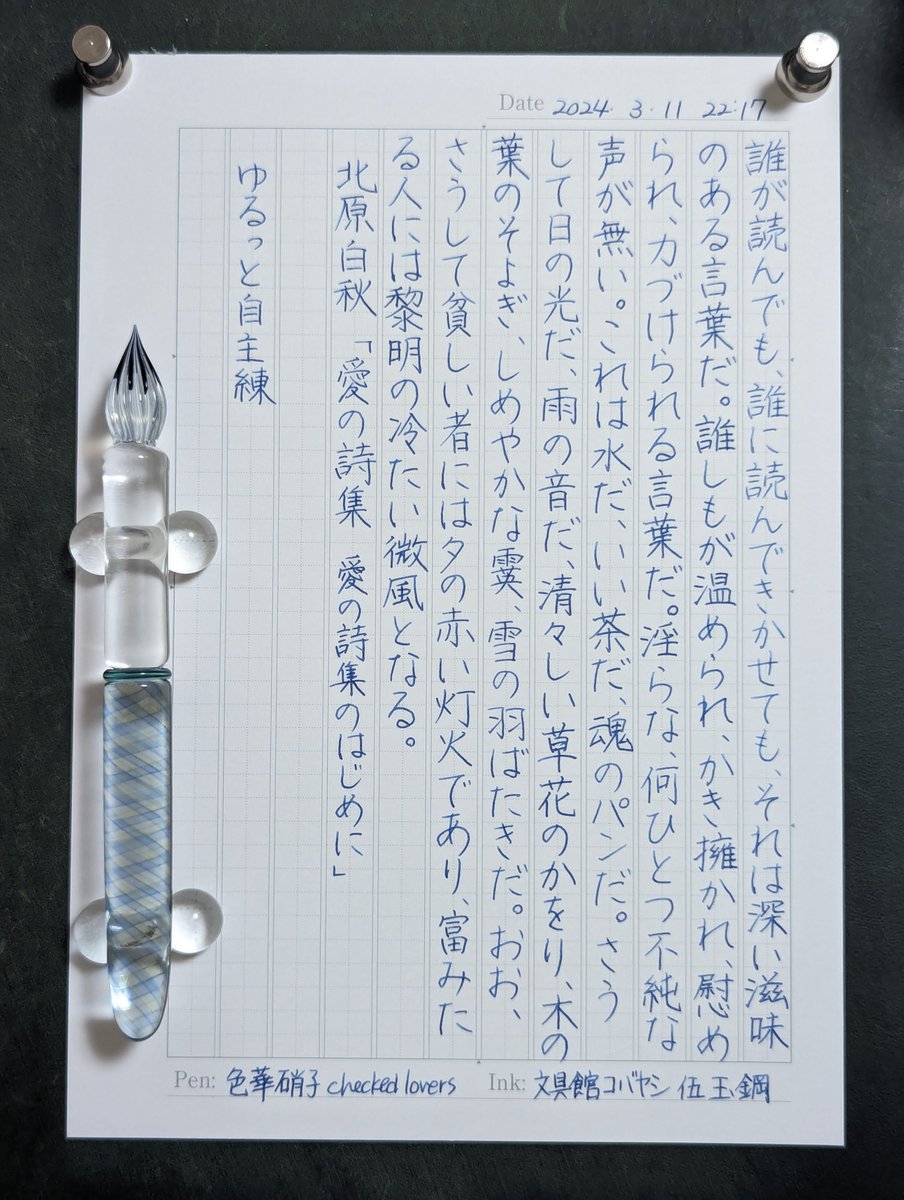 Date 2024・3・11 22:17
誰が読んでも、誰に読んできかせても、それは深い滋味
のある言葉だ。誰しもが温められ、かき擁かれ、慰め
られ、力づけられる言葉だ。淫らな、何ひとつ不純な
声が無い。これは水だ、いい茶だ、魂のパンだ。さう
して日の光だ、雨の音だ、清々しい草花のかをり、木の
葉のそよぎ、しめやかな霙、雪の羽ばたきだ。おお、
さうして貧しい者には夕の赤い灯火であり、富みた
る人には黎明の冷たい微風となる。
北原白秋 「愛の詩集 愛の詩集のはじめに」
ゆるっと自主練
Pen: 色華硝子 checked lovers
Ink: 文具館コバヤシ 伍 玉鋼